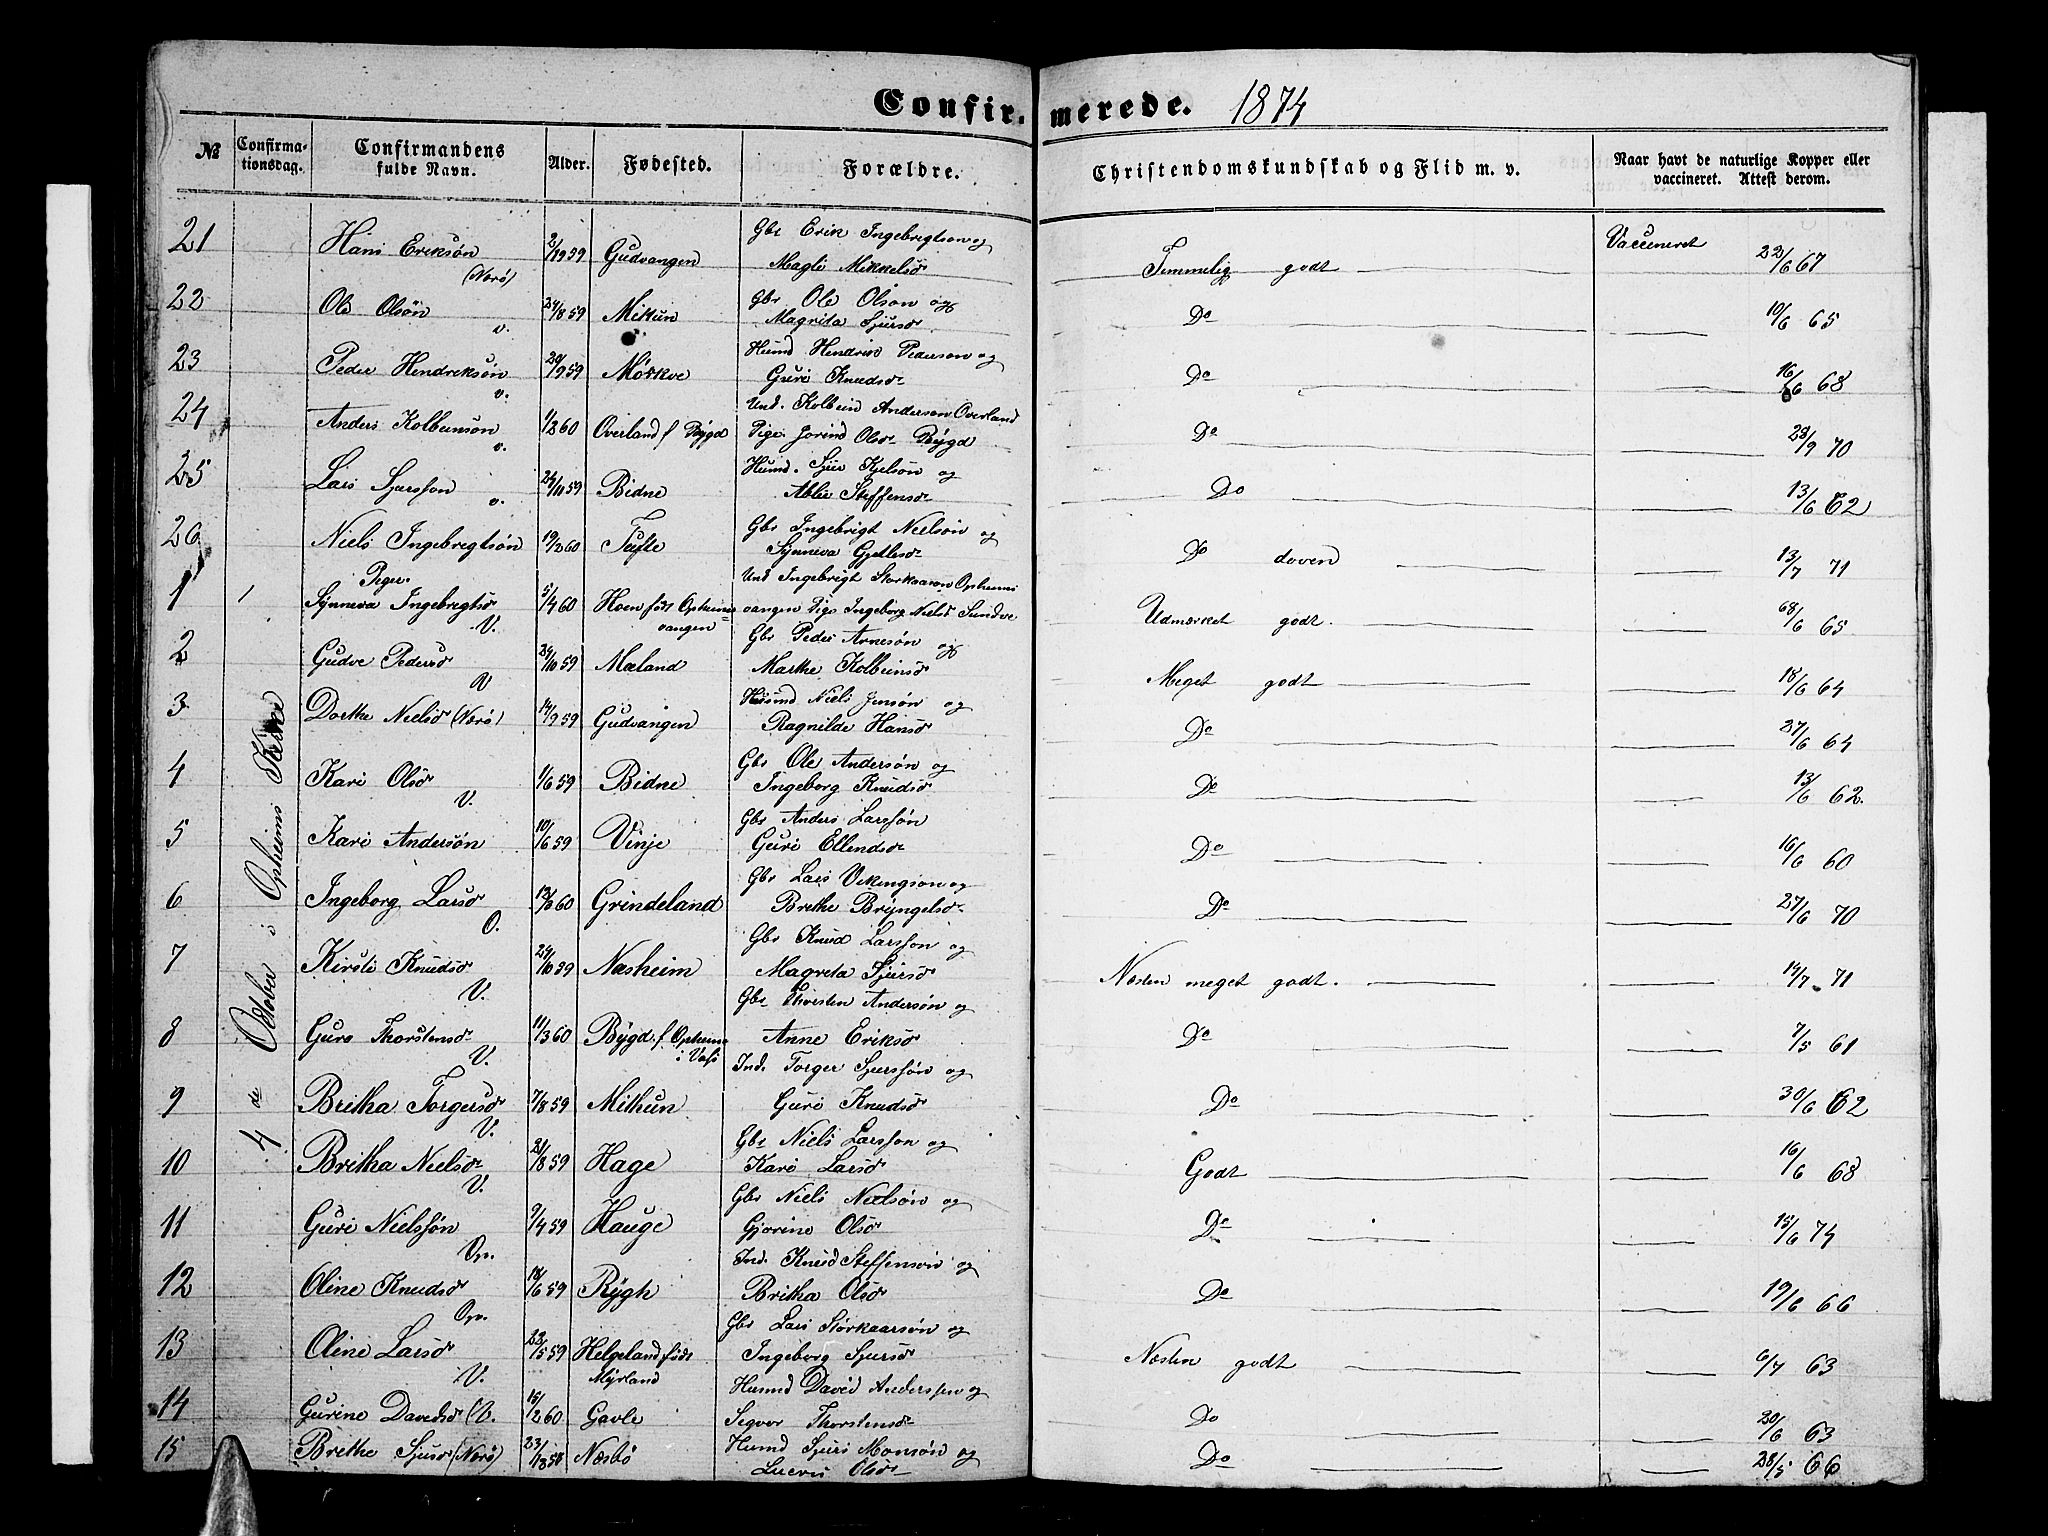 Confirmerede. 1874
№ Confirmationsdag. Confirmandens fulde Navn. Alder. Fødested. Forældre. Christendomskundskab og Flid m. v. Naar havt de naturlige Kopper eller vaccineret. Attest derom.
4 de October i Opheims Kirke
21 Hans Eriksøn Gudvangen Gbr Erik Ingebregtson og Vaccineret
(Nærø) 59 Magli Mikkelsdr Temmelig godt 22/6 67
22 Ole Olsøn 24/8 59 Mikun Gbr Ole Olson og
v. Magrita Sjursdr Do 10/6 65
23 Peder Hendriksøn 59 Mørkve Husmd Hendrik Pederson og
v. Guri Knudsdr Do 16/6 68
24 Anders Kolbeinsøn 1/2 60 Overland f Bygd Und. Kolbein Anderson Overland
v. Pige Jorind Olsdr Bygd Do 28/9 70
25 Lars Sjursson 24/10 59 Bidne Husmd. Sjur Kjelson og
v. Ablie Steffensdr Do 13/6 62
26 Niels Ingebregtsøn 19/2 60 Tufte Gbr Ingebrigt Neelsøn og
Synneva Gjetlesdr Do doven 13/7 71
Piger
1 Synneva Ingebregtsdr 5/4 60 Hoen født Opheimsvangen Und Ingebrigt Storkaarson Opheimsvangen Pige Ingeborg Nielsd Sundve
V. Udmærket godt. 65
2 Gudve Pedersdr 24/10 59 Mæland Gbr Peder Arnesøn og
V Marthe Kolbeinsdr Meget godt 18/6 64
3 Dorthe Nielsdr (Nærø) 14/9 59 Gudvangen Husmd Niels Jensøn og
Ragnilde Hansdr Do 27/6 64
4 Kari Olsdr 1/6 59 Bidne Gbr Ole Andersøn og
V. Ingeborg Knudsdr Do 13/6 62.
5 Kari Andersøn 10/6 59 Vinje Gbr Anders Larssøn
Guri Ellendsdr Do 16/6 60
6 Ingeborg Larsdr 13/3 60 Grindeland Gbr Lars Vikingson og
O. Brithe Bryngelsdr Do 27/6 70
7 Kirsti Knudsdr 24/10 59 Næsheim Gbr Knud Larsson og
V. Magreta Sjursdr Næsten meget godt. 14/7 71
8 Guro Thorstensdr 11/3 60 Bygd f Opheim Gbr Thorsten Andersøn og
V. Anne Eriksdr Do 7/5 61
9 Britha Torgersdr 7/8 59 Mikun Ind. Torger Sjurssøn og
V. Guri Knudsdr Do 30/6 62
10 Britha Nielsdr 21/8 59 Hage Gbr Niels Larsson og
V. Kari Larsdr Godt 16/6 68
11 Guri Nielssøn 9/4 59 Hauge Gbr Niels Nielsøn og
Op. Gjorine Olsdr Do 15/6 74
12 Oline Knudsdr 18/6 59 Rygh Ind. Knud Steffensøn og
Op. Britha Olsdr Do 19/6 66
13 Oline Larsdr 22/5 59 Helgeland født Myrland Gbr Lars Storkaarsøn og
V. Ingeborg Sjursdr Næsten godt 6/7 63
14 Gurine Davidsdr (V. 15/2 60 Gavle Husmd David Anderssen og
Segvor Thorstensdr Do 20/6 63
15 Brithe Sjursdr (Nærø) Næsbø Husmd Sjurs Monsøn og
Olsdr Do 28/5 66